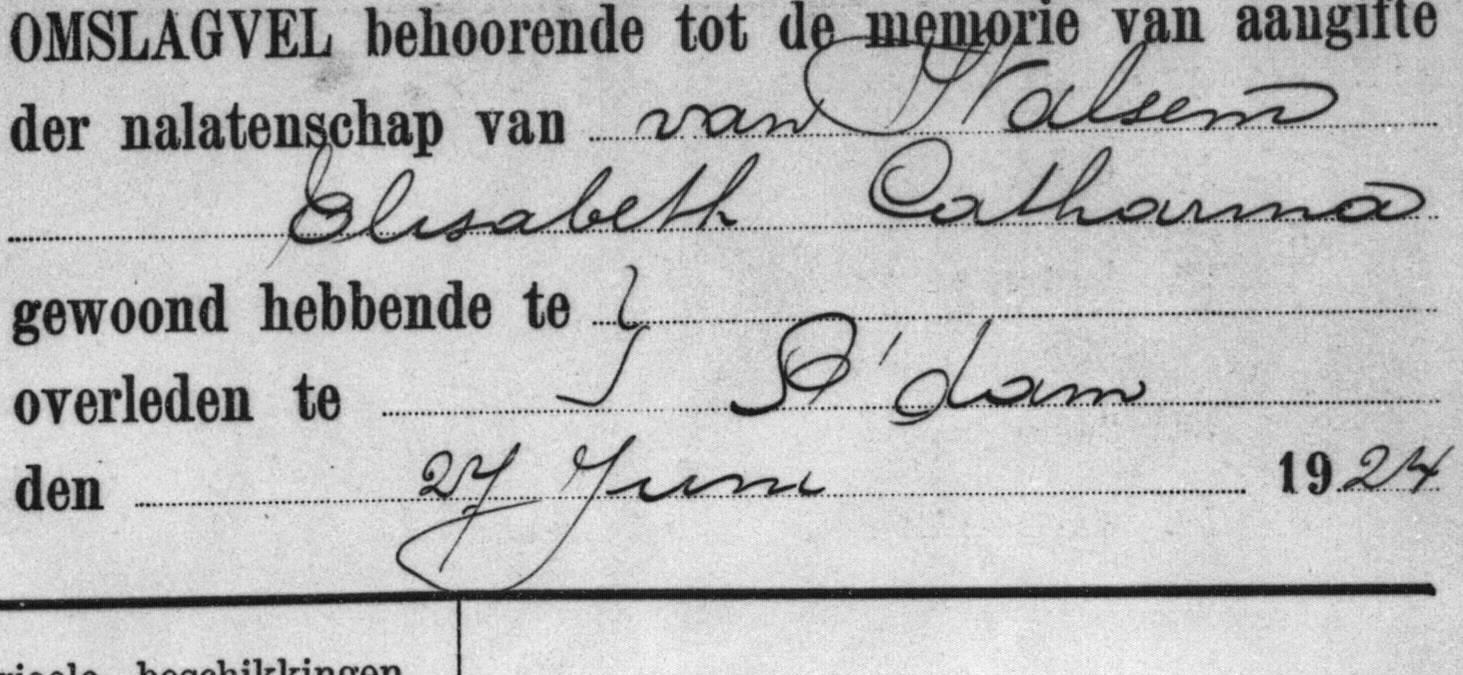 OMSLAGVEL behoorende tot de memorie van aangifte
der nalatenschap van van Walsem
Elisabeth Catharina
gewoond hebbende te
overleden te R'dam
den 27 Juni 1924
beschikkingen